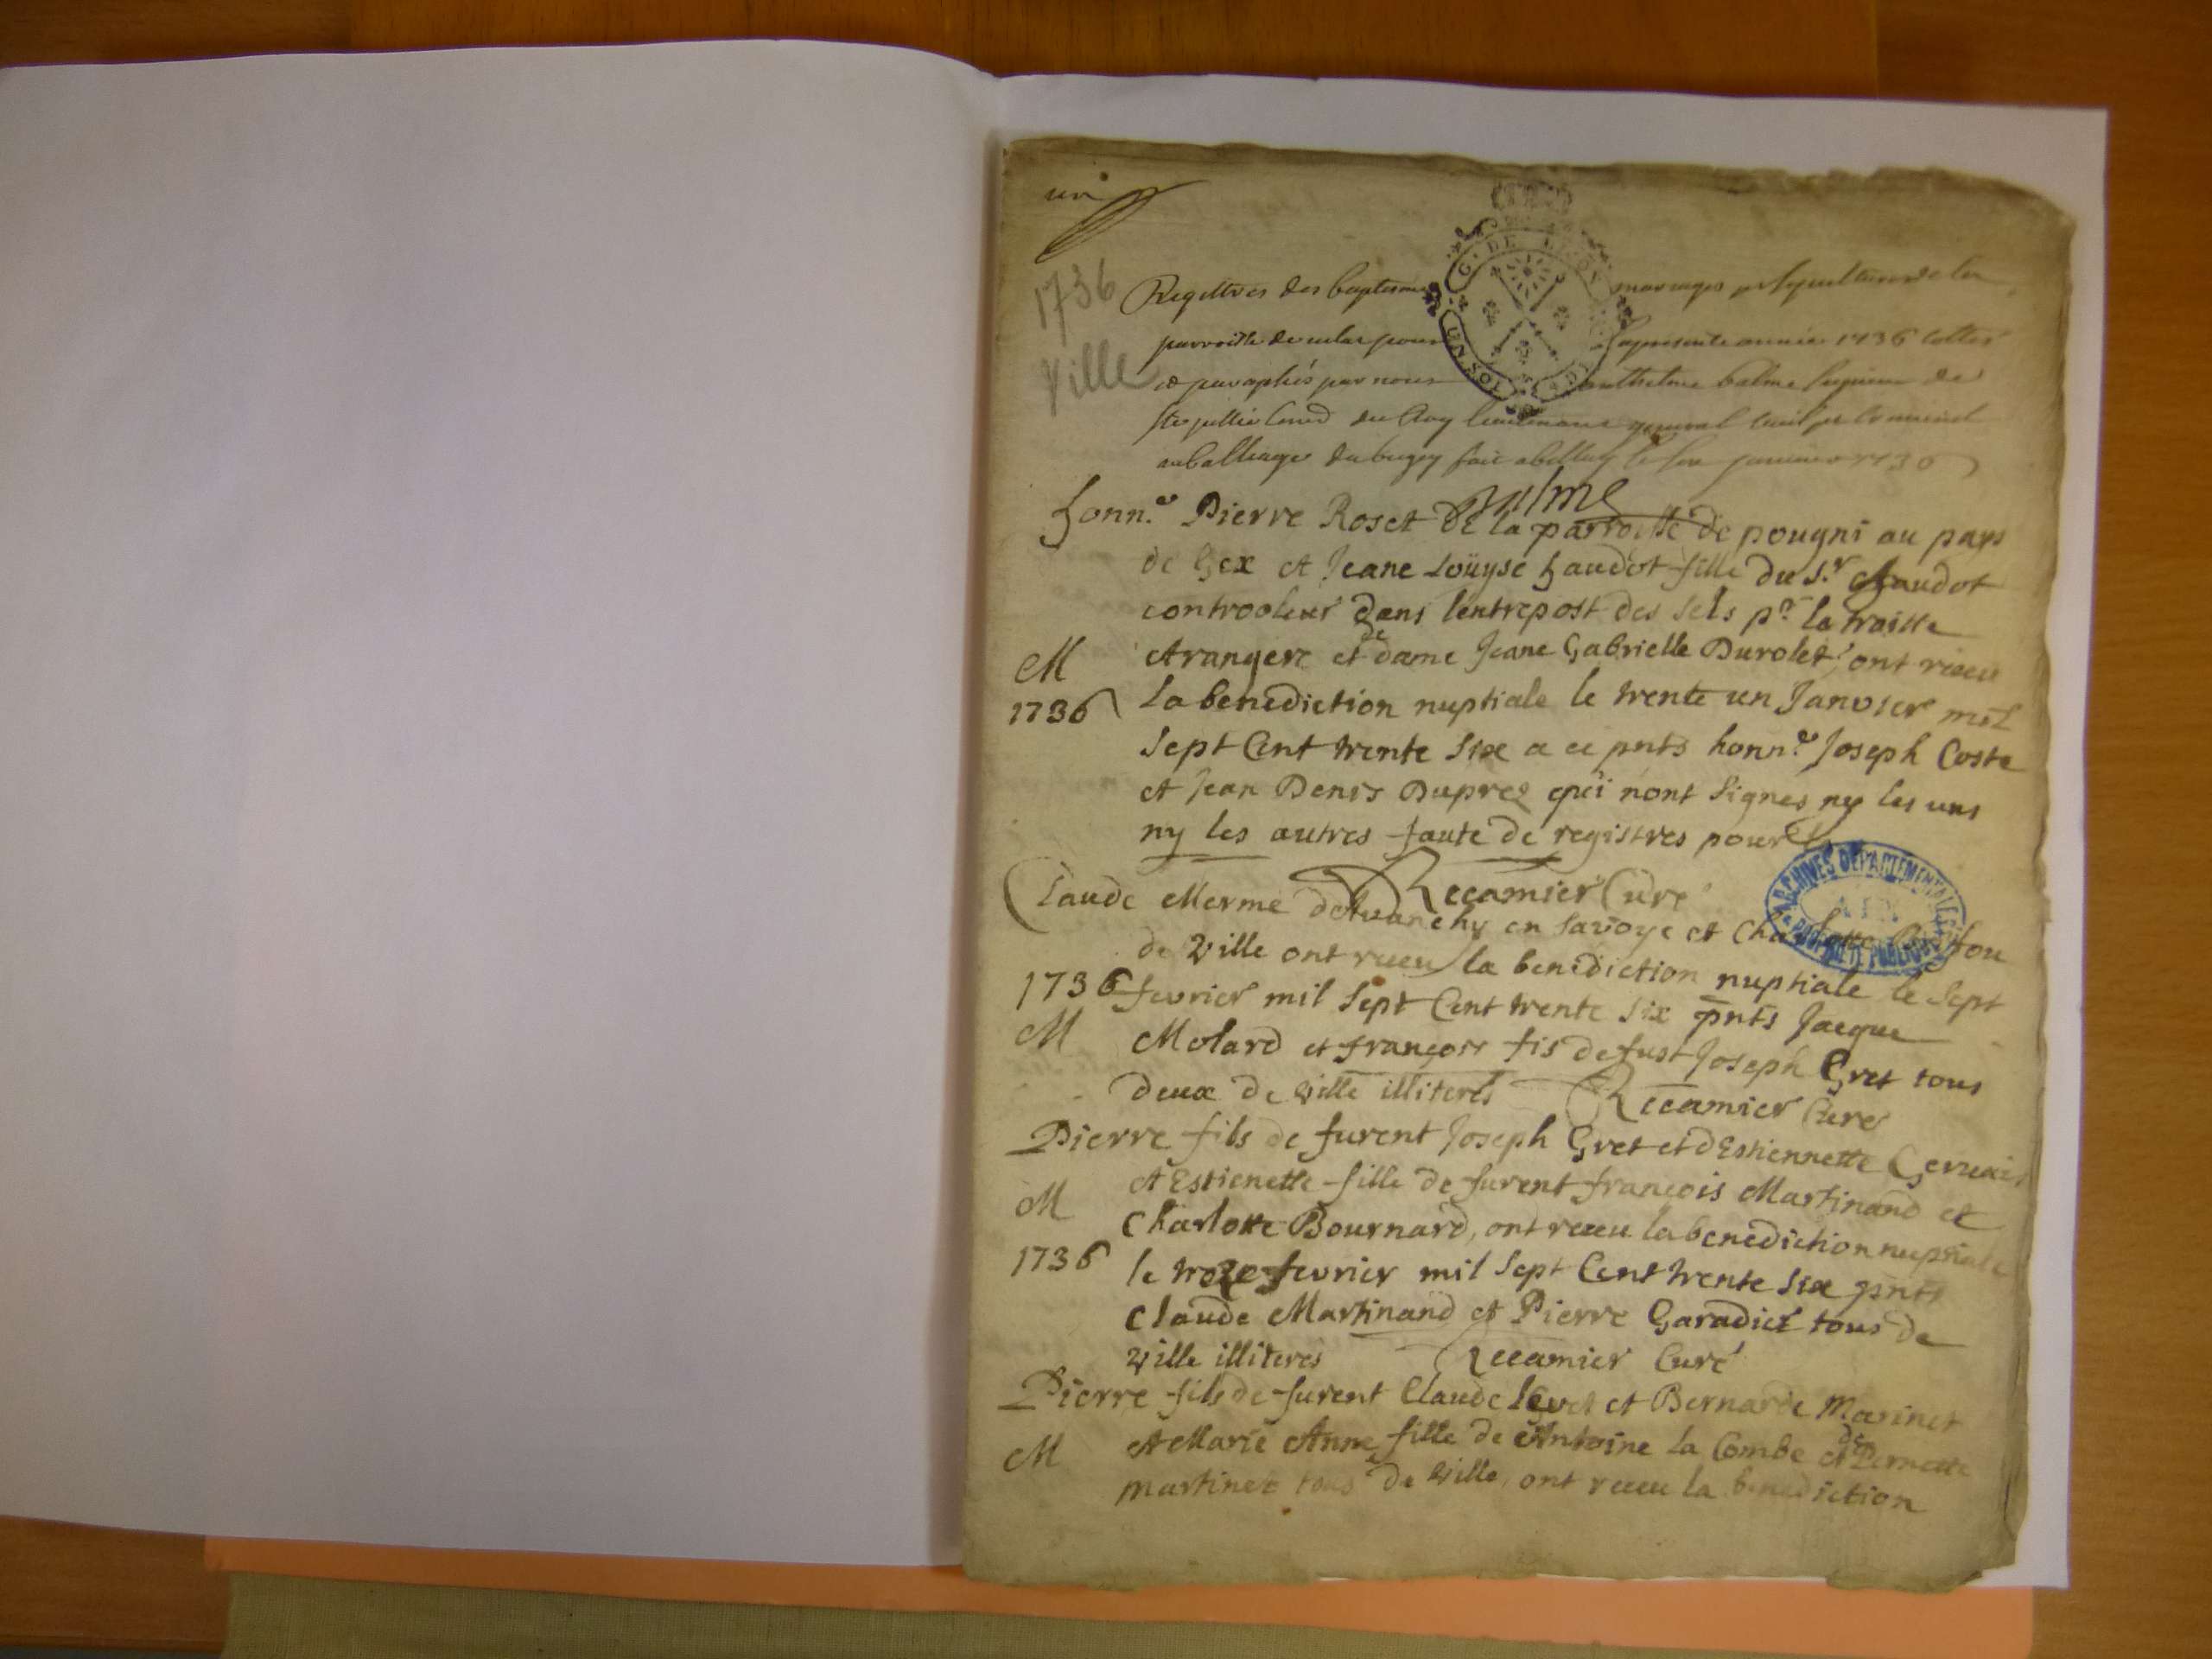 un
1736
Ville
Registres des baptesmes mariages et sepultures de la
parroisse de pour la presente année 1736 cottés
et paraphés par nous anthelme balme seigneur de
Ste jullie Cons.er du Roy lieutenant general civil et criminel
au balliage du bugey fait a belley le janvier 1736
Balme
G. DE DIJON
UN SOL
honn.e Pierre Roset De la parroisse de pougni au pays
de Gex et Jeane Loüyse haudot fille du S.r haudot
controoleur dans l'entrepost des sels p.r la traitte
etrangere et de dame Jeane Gabrielle Durolet, ont receu
la benediction nuptiale le trente un Janvier mil
Sept Cent trente Six a ce pnts honn.e Joseph Coste
et Jean Denis Duprez qui nont Signes ny les uns
ny les autres faute de registres pour
M
1736
Recamier Curé
ARCHIVES DEPARTEMENTALES
AIN
PROPRIETE PUBLIQUE
Claude Merme en Savoye et Charlotte
de Ville ont receu la benediction nuptiale le Sept
fevrier mil Sept Cent trente Six pnts Jacque
Molard et françois fis de fust Joseph Gret tous
deux de ville illiterés Recamier Curé
1736
M
Pierre fils de furent Joseph Gret et d'Estiennette Gervais
et Estienette fille de furent françois Martinand et
Charlotte Bournard, ont receu la benediction nuptiale
le treze fevrier mil Sept Cent trente Six pnts
Claude Martinand et Pierre Garadiet tous de
ville illiterés Recamier Curé
M
1736
Pierre fils de furent Claude et Bernarde Marinet
et Marie Anne fille de Antoine la Combe et de Pernette
martinet tous de Ville, ont receu la benediction
M